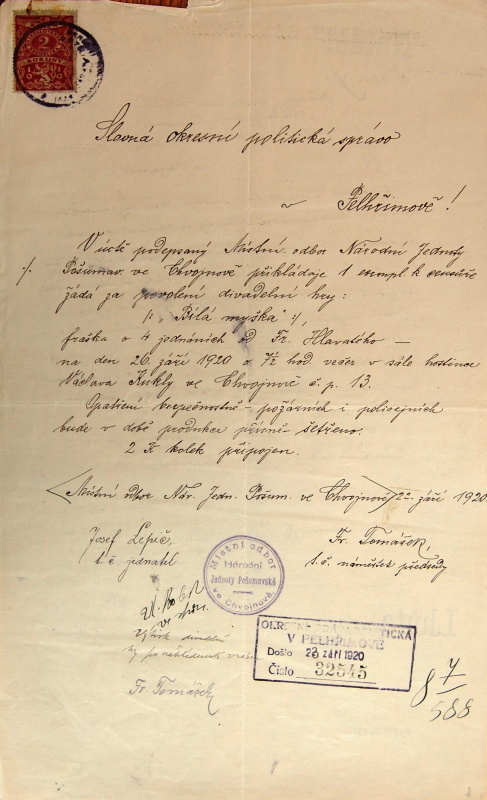 2
KORUNY
Slavná okresní politická správo
v Pelhřimově!
V úctě podepsaný Místní odbor Národní Jednoty
·/. Pošumav. ve Chvojnově přikládaje 1 exempl. k censuře
žádá za povolení divadelní hry:
/: „Bílá myška" :/,
fraška o 4 jednáních od Fr. Hlavatého —
na den 26. září 1920 o 7½ hod večer v sále hostince
Václava Kukly ve Chvojnově č. p. 13.
Opatření bezpečnostně-požárních i policejních
bude v době produkce přísně šetřeno.
2 K kolek připojen.
Místní odbor Nár. Jedn. Pošum. ve Chvojnově, 22. září 1920
Josef Lepič,
t. č. jednatel
Fr. Tomášek,
t. č. náměstek předsedy
Místní odbor
Národní
Jednoty Pošumavské
ve Chvojnově.
OKRESNÍ SPRÁVA POLITICKÁ
V PELHŘIMOVĚ
Došlo 23 září 1920
Číslo 32545
Fr. Tomášek
8 7/588